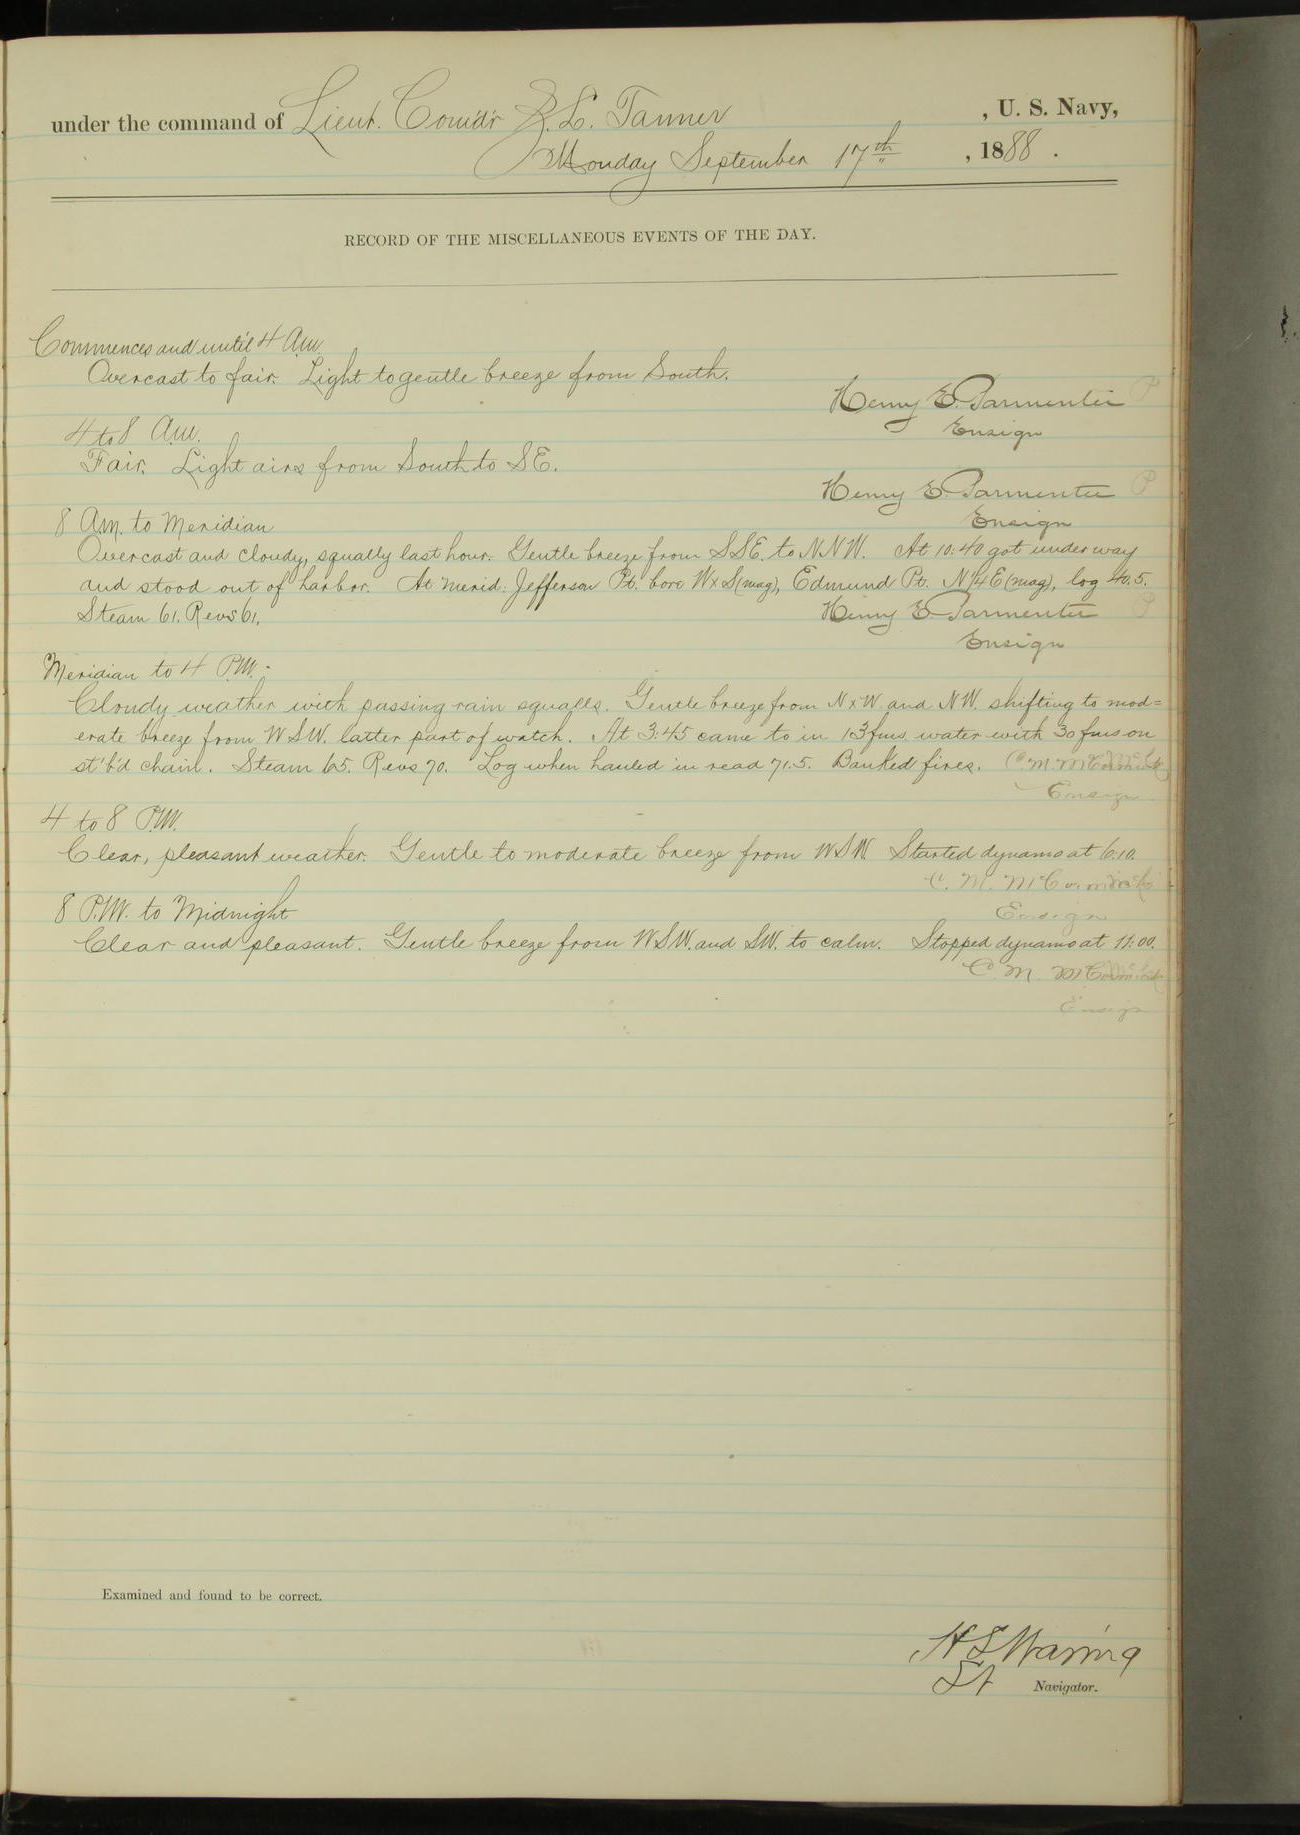 under the command of Lieut. Comd'r Z. L. Tanner , U. S. Navy,
Monday September 17th , 1888 .
RECORD OF THE MISCELLANEOUS EVENTS OF THE DAY.
Commences and until 4 A.M.
Overcast to fair. Light to gentle breeze from South.
Henry E. Parmenter
Ensign
4 to 8 A.M.
Fair. Light airs from South to SE.
Henry E. Parmenter
Ensign
8 A.M. to Meridian
Overcast and cloudy, squally last hour. Gentle breeze from SSE. to NNW. At 10:40 got under way
and stood out of harbor. At merid. Jefferson Pt. bore WxS (mag), Edmund Pt. N 1/4 E (mag), log 40.5.
Steam 61. Revs 61.
Henry E. Parmenter
Ensign
Meridian to 4 P.M.:
Cloudy weather with passing rain squalls. Gentle breeze from NxW and NW. shifting to mod=
erate breeze from WSW. latter part of watch. At 3:45 came to in 13 fms water with 30 fms on
st'b'd chain. Steam 65. Revs 70. Log when hauled in read 71.5. Banked fires. C. M. McCormick
Ensign
4 to 8 P.M.
Clear, pleasant weather. Gentle to moderate breeze from WSW. Started dynamo at 6:10.
C. M. McCormick
Ensign
8 P.M. to Midnight
Clear and pleasant. Gentle breeze from WSW. and SW. to calm. Stopped dynamo at 11:00.
C. M. McCormick
Ensign
Examined and found to be correct.
H S Waring
Lt Navigator.